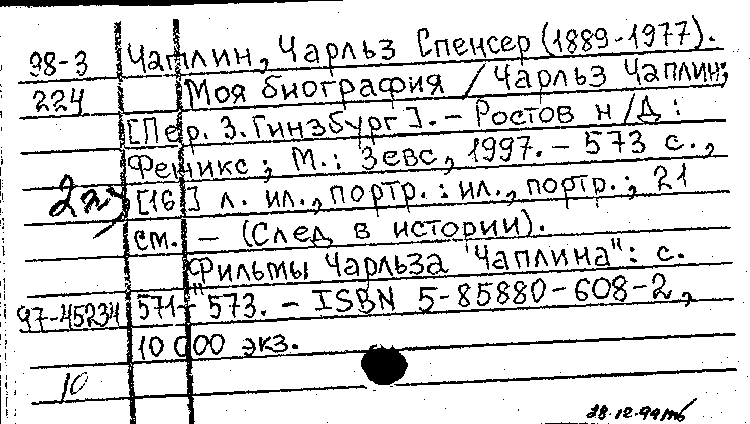 98-3 Чаплин, Чарльз Спенсер (1889-1977).
224 Моя биография / Чарльз Чаплин;
[Пер. З. Гинзбург]. - Ростов н/Д:
Феникс; М.: Зевс, 1997. - 573 с.,
[16] л. ил., портр. : ил., портр.; 21
см. - (След в истории).
Фильмы Чарльза Чаплина": с.
97-45234 571-"573. - ISBN 5-85880-608-2,
10 000 экз.
10